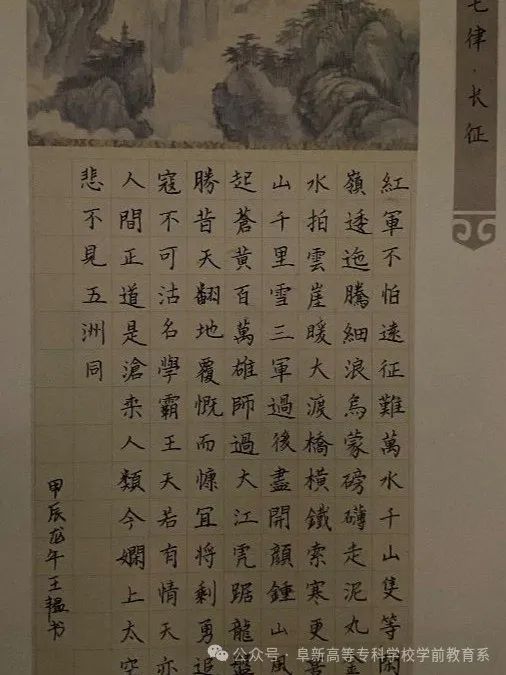 七律·长征
紅軍不怕遠征難萬水千山隻等閑
嶺逶迤騰細浪烏蒙磅礴走泥丸金
水拍雲崖暖大渡橋橫鐵索寒更喜
山千里雪三軍過後盡開顏鍾山風
起蒼黃百萬雄師過大江虎踞龍盤
勝昔天翻地覆慨而慷宜將剩勇追
寇不可沽名學霸王天若有情天亦
人間正道是滄桒人類今嫻上太空
悲不見五洲同
甲辰龙年王韞书
公众号·阜新高等专科学校学前教育系